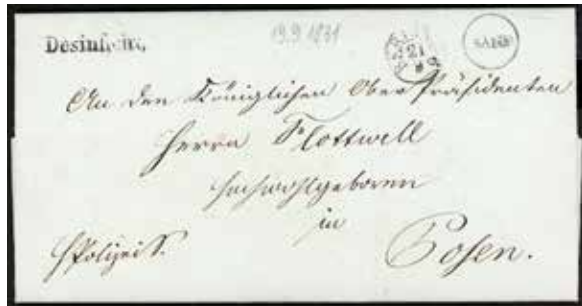 Desinficirt.
19.9 1831
21
9
SANIT
An den Königlichen Ober Präsidenten
Herrn Flottwell
Hochwohlgeboren
in
Posen.